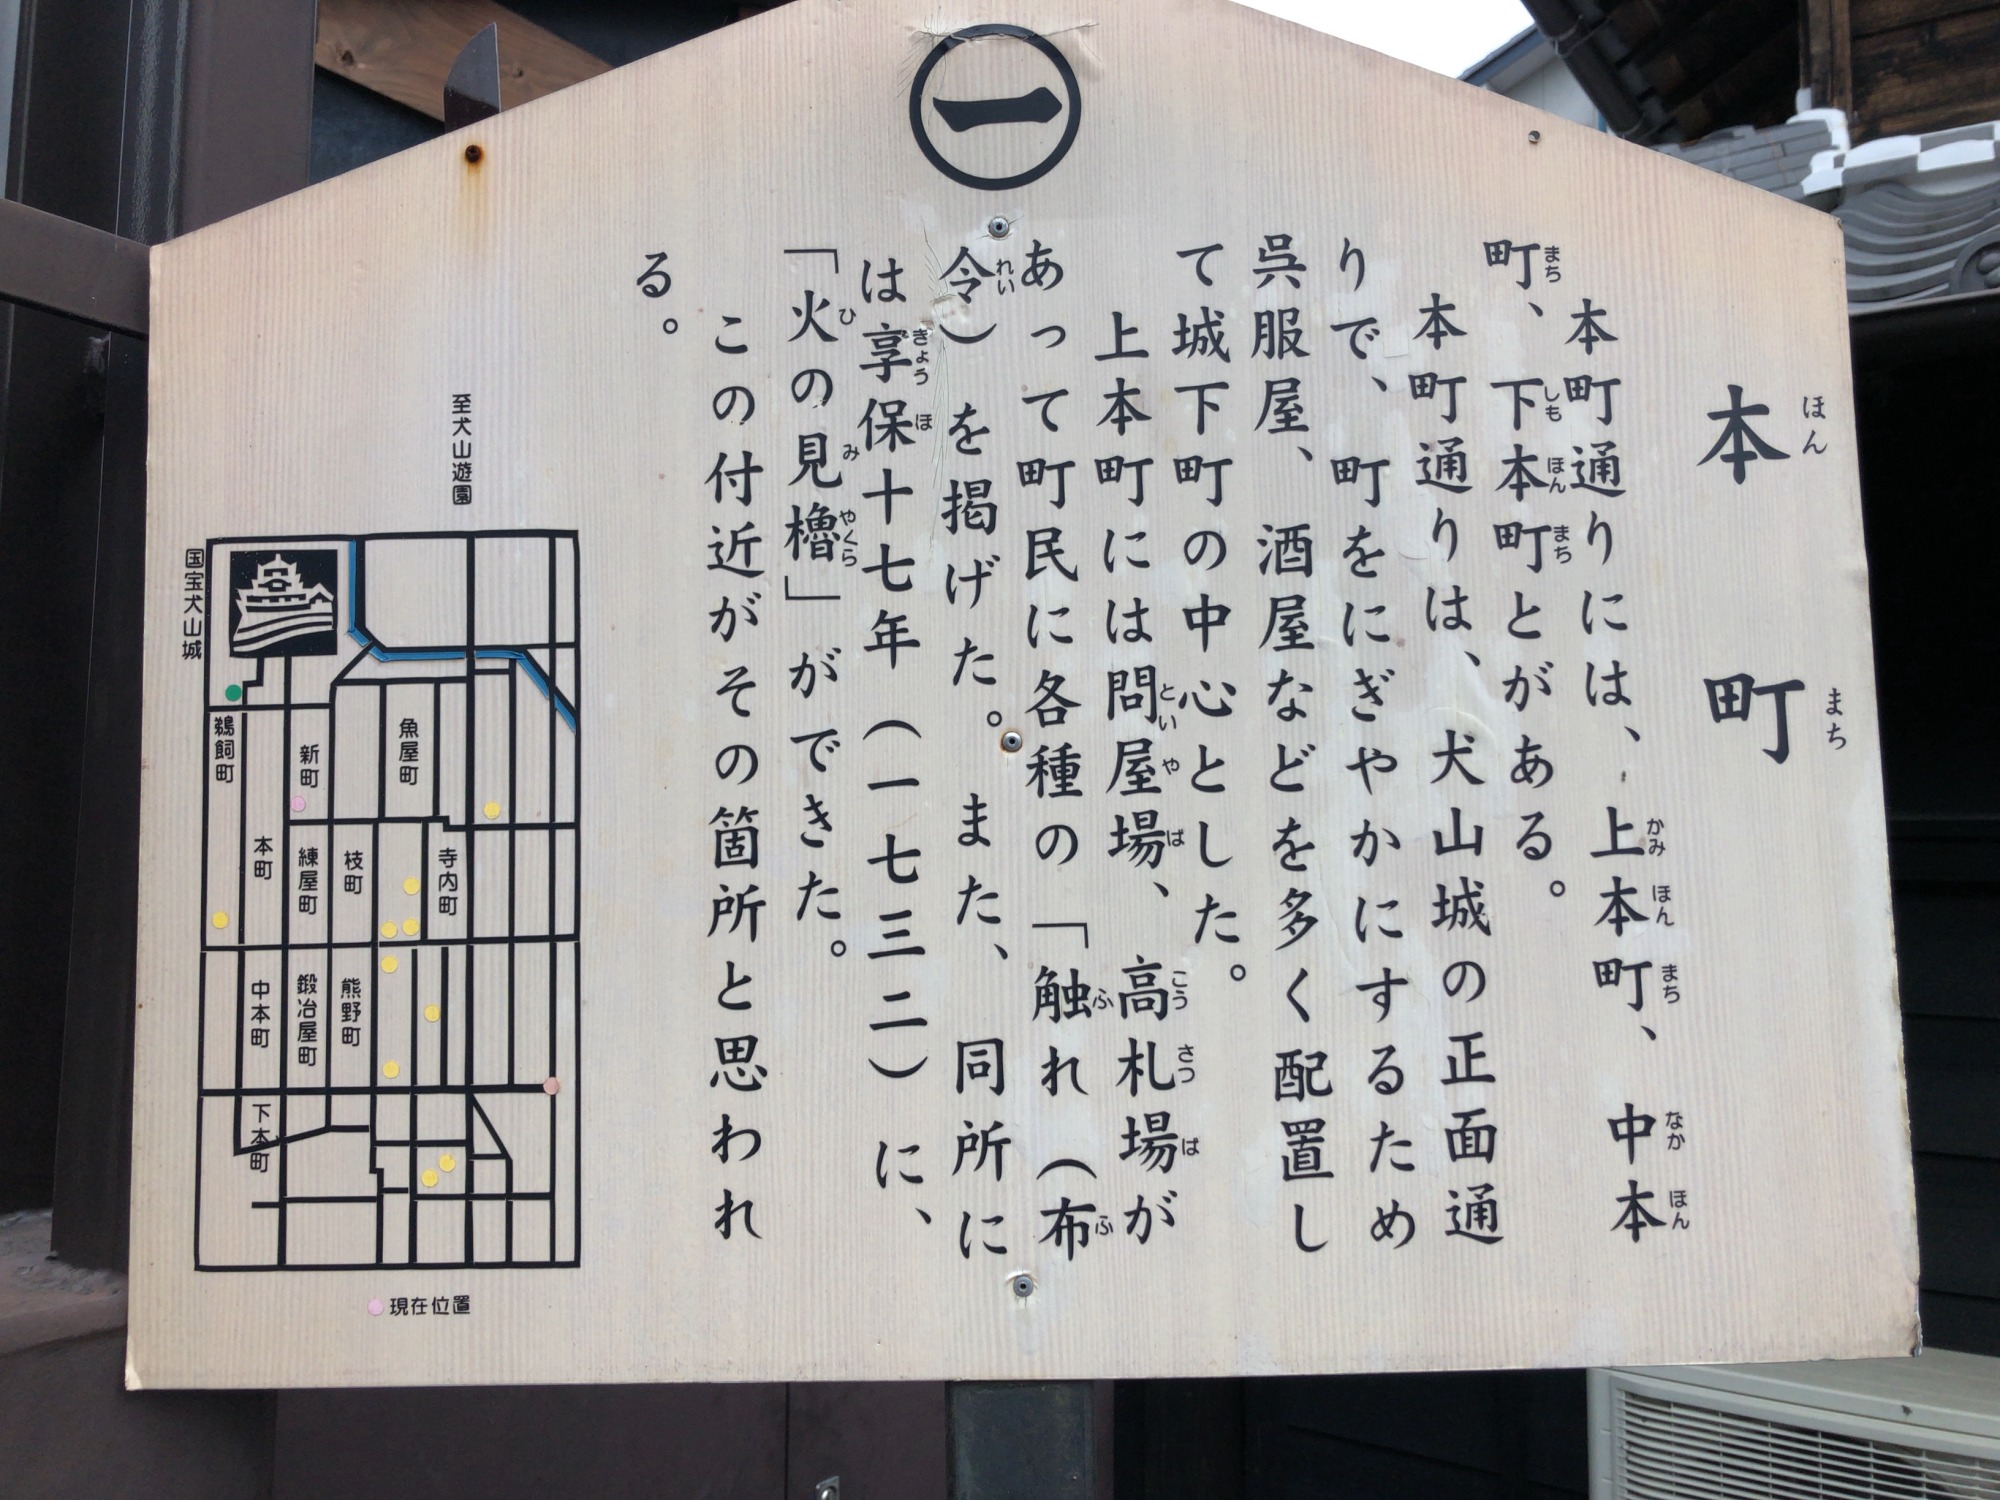 一
本町
ほんまち
本町通りには、上本町、中本
かみほんまち なかほん
町、下本町とがある。
まち しもほんまち
本町通りは、犬山城の正面通
りで、町をにぎやかにするため
呉服屋、酒屋などを多く配置し
て城下町の中心とした。
上本町には問屋場、高札場が
といやば こうさつば
あって町民に各種の「触れ（布
ふ ふ
令）を掲げた。また、同所に
れい
は享保十七年（一七三二）に、
きょうほ
「火の見櫓」ができた。
ひ み やくら
この付近がその箇所と思われ
る。
至犬山遊園
国宝犬山城
鵜飼町
新町
魚屋町
本町
練屋町
枝町
寺内町
中本町
鍛冶屋町
熊野町
下本町
現在位置